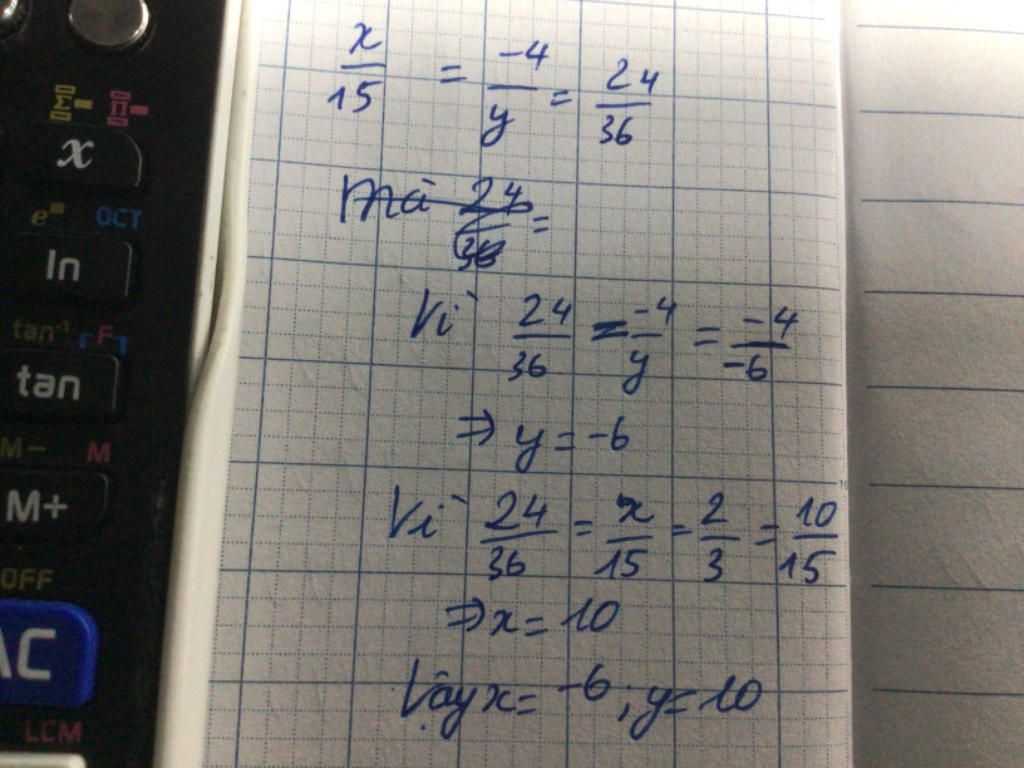 x/15 = -4/y = 24/36
Mà 24/36 =
Vì 24/36 = -4/y = -4/-6
⇒ y = -6
Vì 24/36 = x/15 = 2/3 = 10/15
⇒ x = 10
Vậy x = -6 ; y = 10
Σ- Π-
x
e OCT
ln
tan⁻¹ F
tan
M- M
M+
OFF
AC
LCM